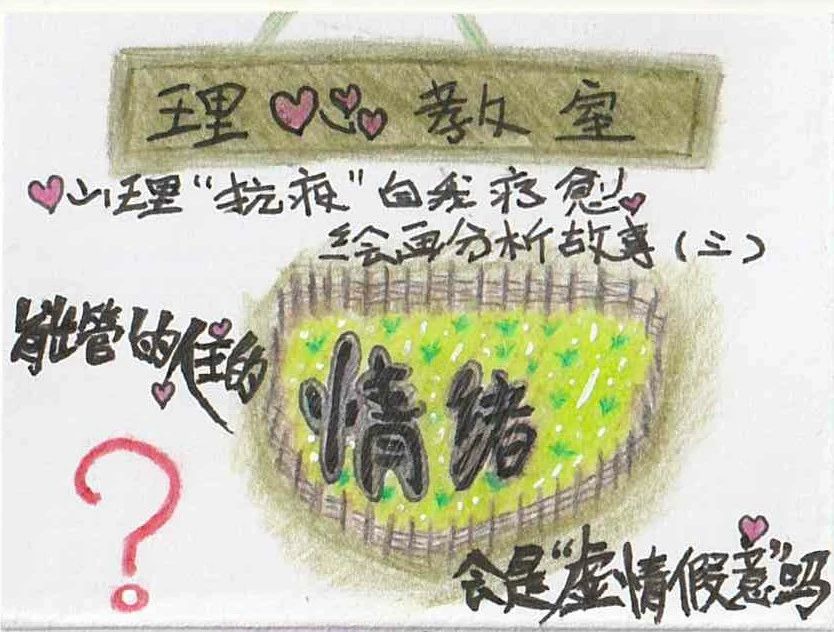 理心教室
心理“抗疫”自我疗愈
绘画分析故事(三)
能管的住的
情绪
?
会是“虚情假意”吗